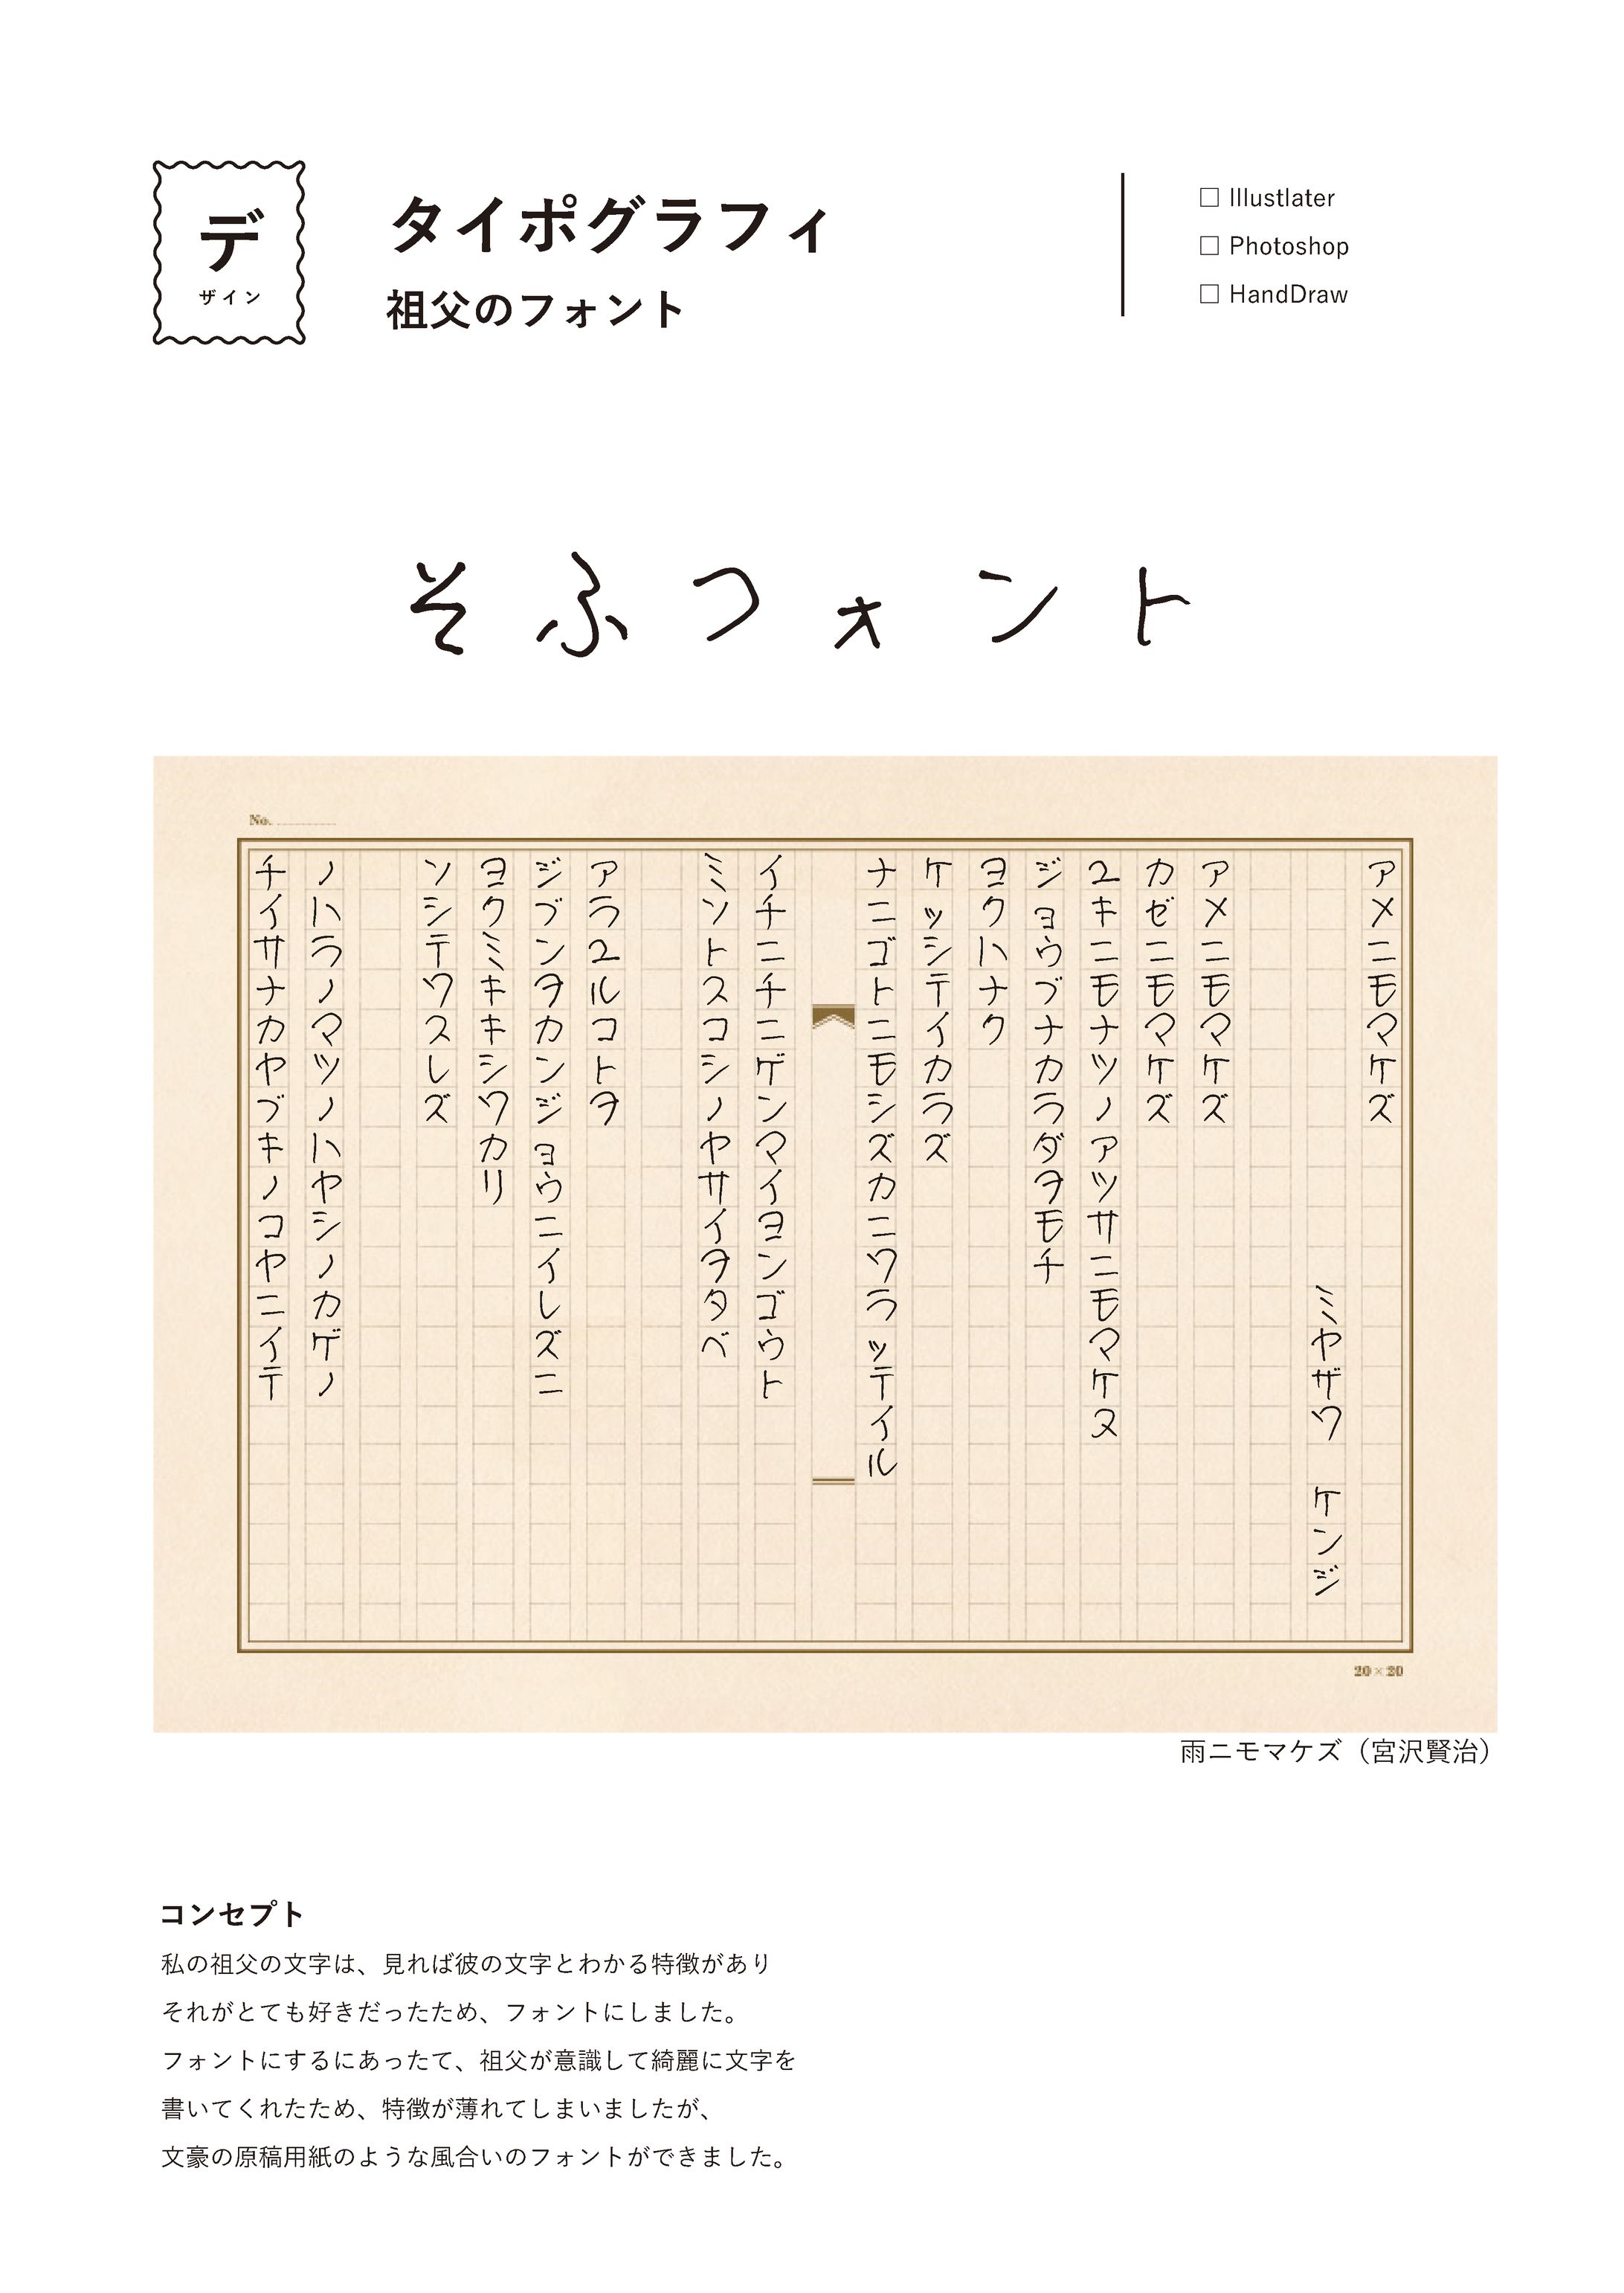 デ
ザイン
タイポグラフィ
祖父のフォント
□ Illustlater
□ Photoshop
□ HandDraw
そふフォント
No.
アメニモマケズ
ミヤザワ ケンジ
アメニモマケズ
カゼニモマケズ
ユキニモナツノアツサニモマケヌ
ジョウブナカラダヲモチ
ヨクハナク
ケッシテイカラズ
ナニゴトニモシズカニワラッテイル
イチニチニゲンマイヨンゴウト
ミソトスコシノヤサイヲタベ
アラユルコトヲ
ジブンヲカンジョウニイレズニ
ヨクミキキシワカリ
ソシテワスレズ
ノハラノマツノハヤシノカゲノ
チイサナカヤブキノコヤニイテ
20×20
雨ニモマケズ（宮沢賢治）
コンセプト
私の祖父の文字は、見れば彼の文字とわかる特徴があり
それがとても好きだったため、フォントにしました。
フォントにするにあったて、祖父が意識して綺麗に文字を
書いてくれたため、特徴が薄れてしまいましたが、
文豪の原稿用紙のような風合いのフォントができました。